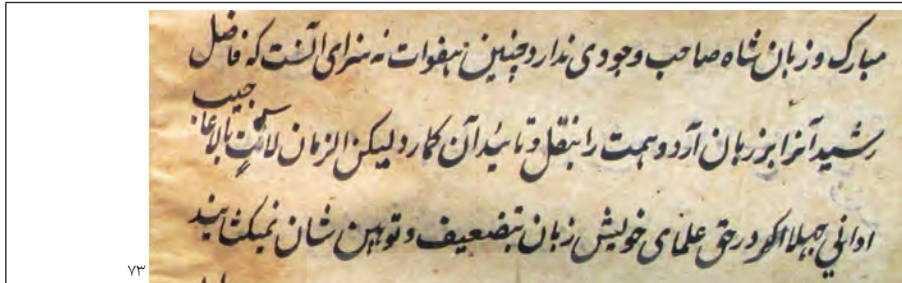 مبارک و زبان شاه صاحب وجودی ندارد چنین هفوات نه سزای آنست که فاضل
رشید آنرا بر زبان آرد و همت را بنقل و تائید آن کمارد لیکن الزمان لا
ادانی جهلا اکر در حق علمای خویش زبان بتضعیف و توهین شان نمیکشایند
۷۳